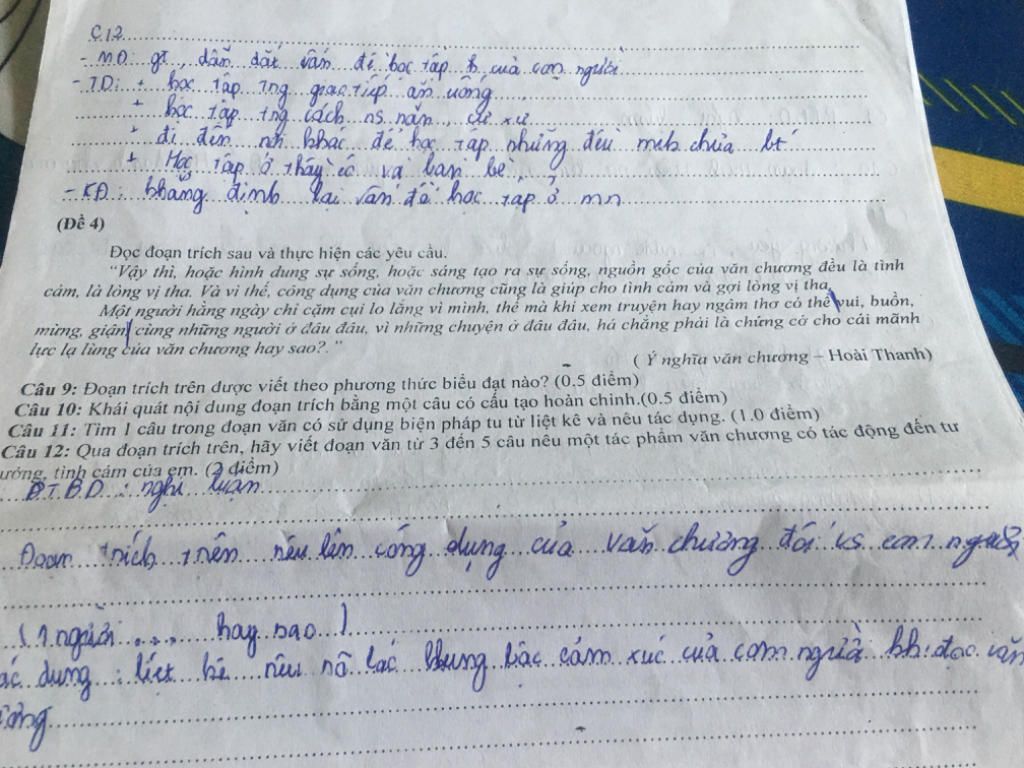 C12
- MĐ: gt, dẫn dắt vấn đề học tập của con người
- TD: + học tập tng giao tiếp ăn uống
+ học tập tng cách ns năn, cư xử
+ đi đến nơi khác để học tập những đều mih chưa bt
+ Học tập ở thầy cô và bạn bè
- KĐ: khẳng định lại vấn đề học tập ở mn
(Đề 4)
Đọc đoạn trích sau và thực hiện các yêu cầu.
"Vậy thì, hoặc hình dung sự sống, hoặc sáng tạo ra sự sống, nguồn gốc của văn chương đều là tình
cảm, là lòng vị tha. Và vì thế, công dụng của văn chương cũng là giúp cho tình cảm và gợi lòng vị tha.
Một người hằng ngày chỉ cặm cụi lo lắng vì mình, thế mà khi xem truyện hay ngâm thơ có thể vui, buồn,
mừng, giận cùng những người ở đâu đâu, vì những chuyện ở đâu đâu, há chẳng phải là chứng cớ cho cái mãnh
lực lạ lùng của văn chương hay sao?."
( Ý nghĩa văn chương – Hoài Thanh)
Câu 9: Đoạn trích trên được viết theo phương thức biểu đạt nào? (0.5 điểm)
Câu 10: Khái quát nội dung đoạn trích bằng một câu có cấu tạo hoàn chỉnh.(0.5 điểm)
Câu 11: Tìm 1 câu trong đoạn văn có sử dụng biện pháp tu từ liệt kê và nêu tác dụng. (1.0 điểm)
Câu 12: Qua đoạn trích trên, hãy viết đoạn văn từ 3 đến 5 câu nêu một tác phẩm văn chương có tác động đến tư
ưởng, tình cảm của em. (2 điểm)
P.T.B.D: nghị luận
Đoạn trích trên nêu lên công dụng của văn chương đối vs con người
( 1 người .... hay sao )
ác dụng: liệt kê nêu cảm xúc của con người kh đọc văn
ương